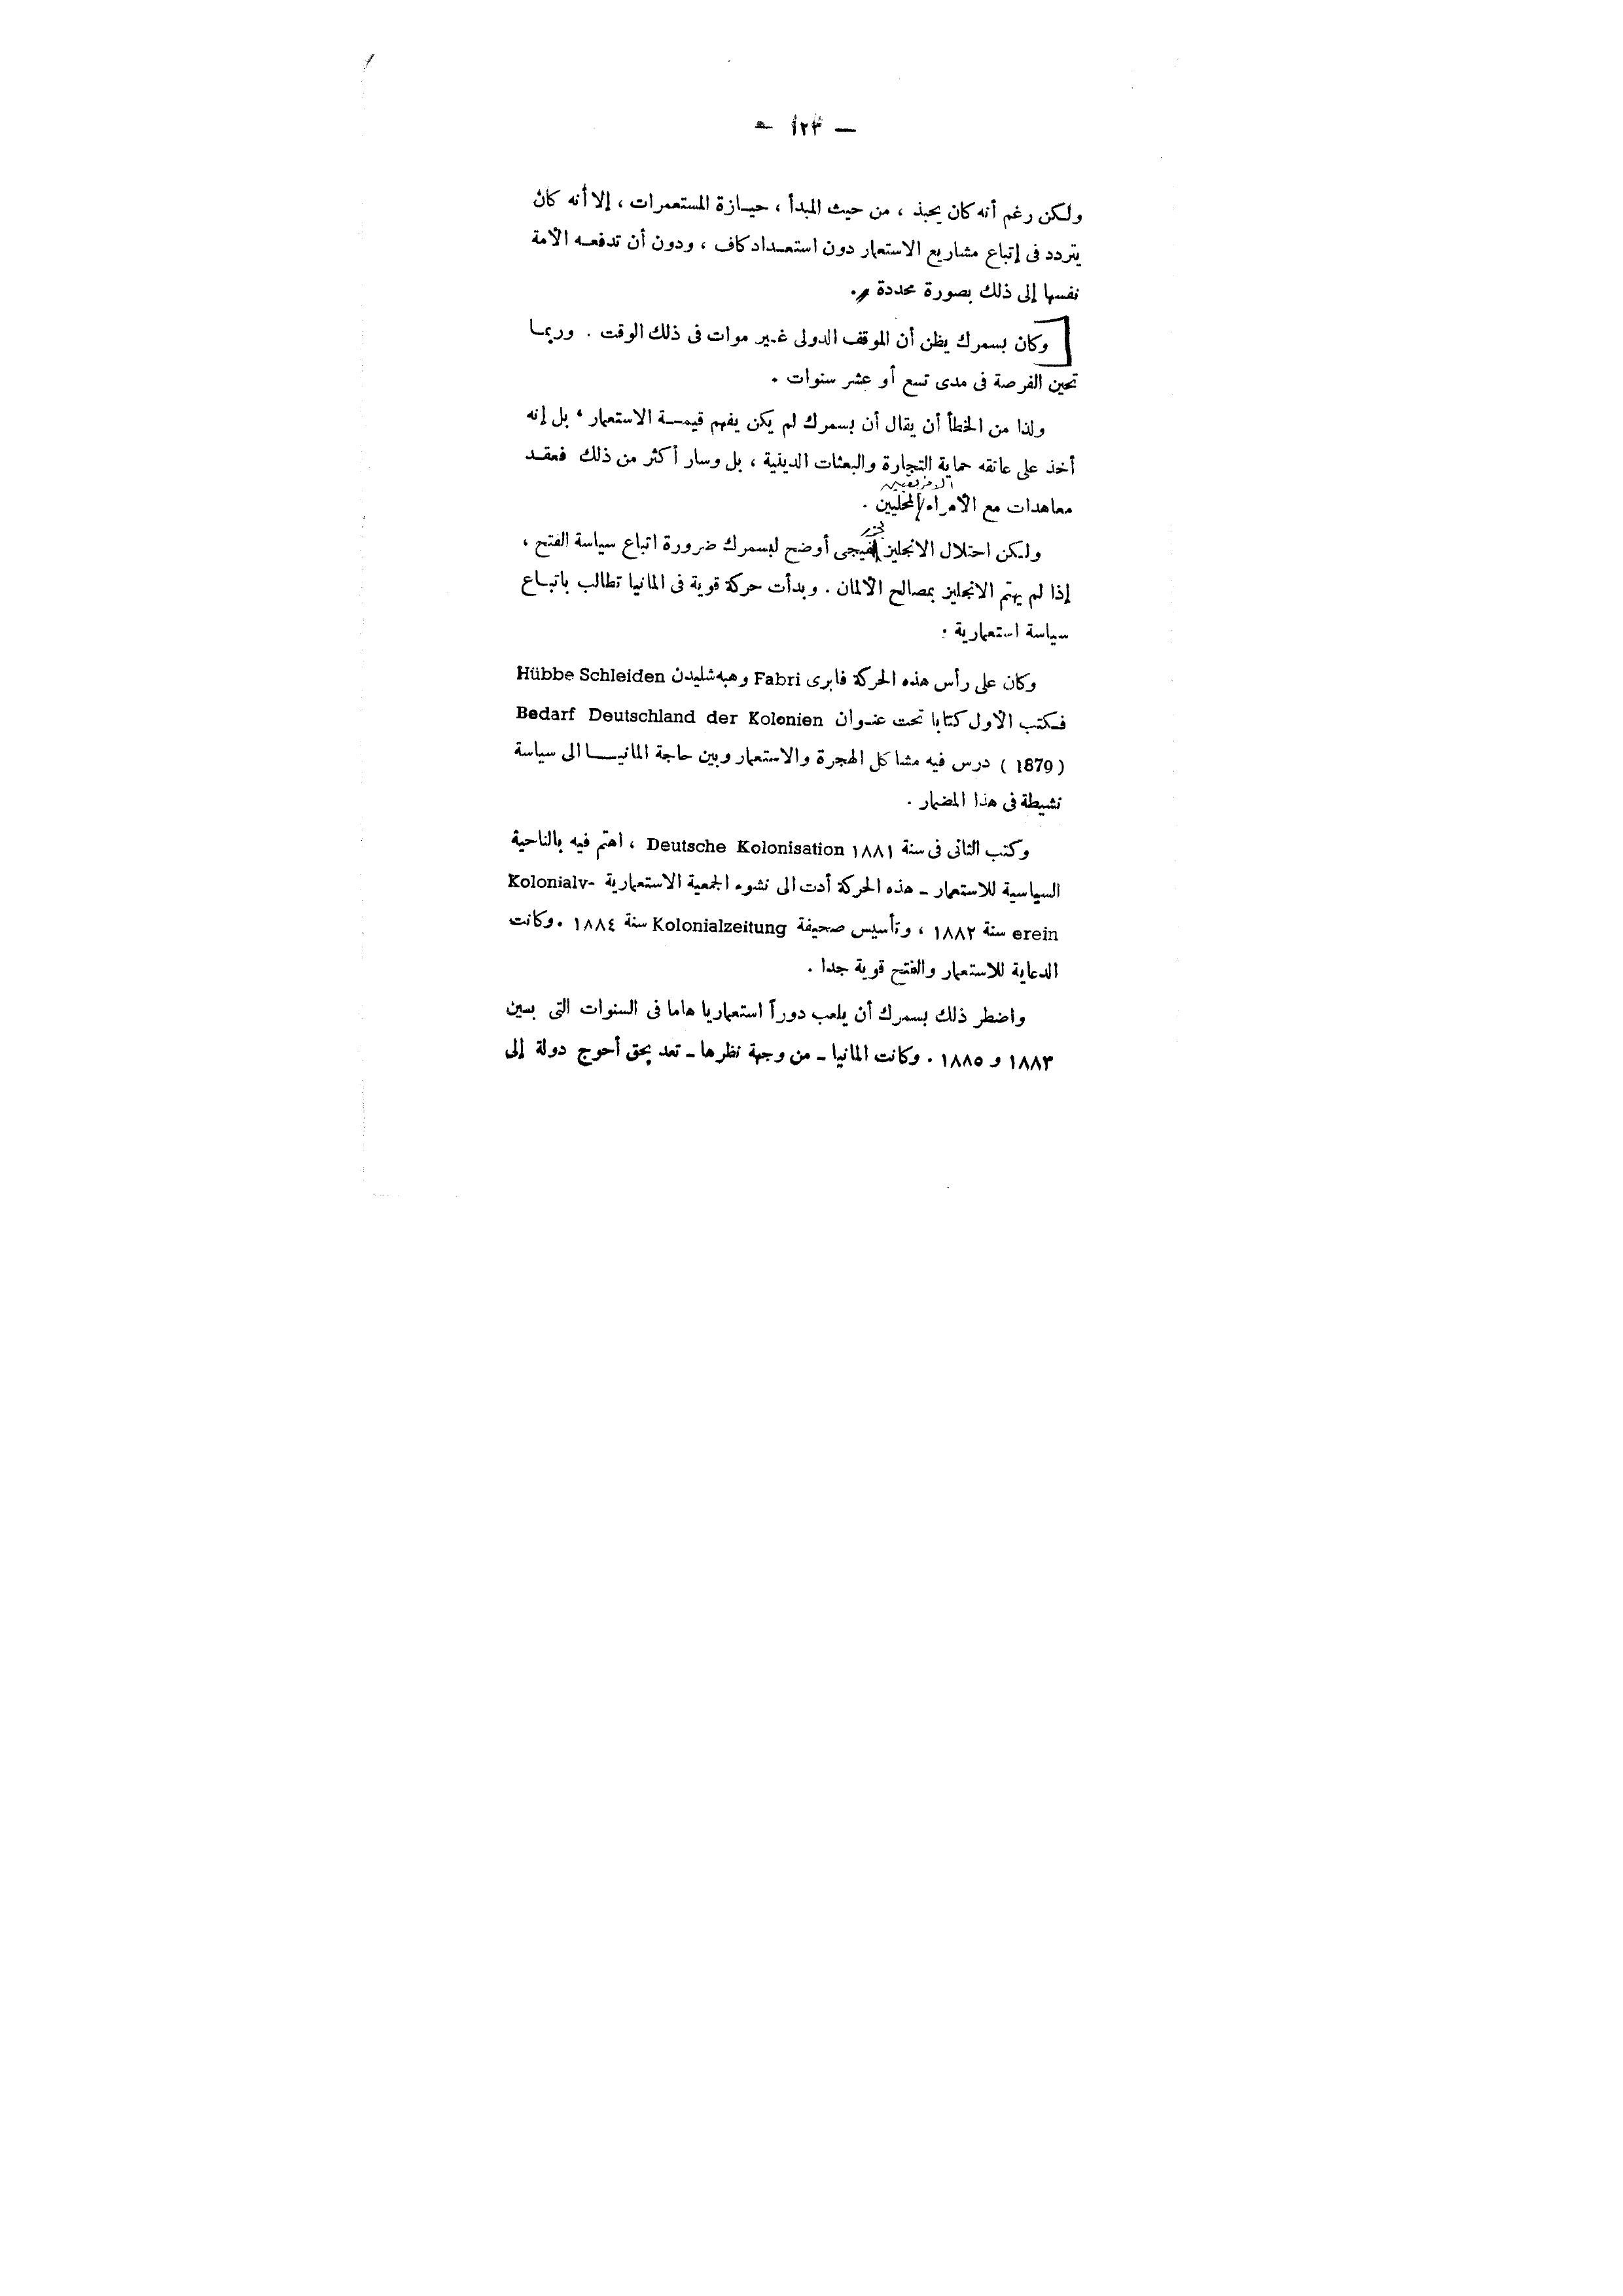 — ١٢٣ —
ولكن رغم أنه كان يحبذ ، من حيث المبدأ ، حيازة المستعمرات ، إلا أنه كان
يتردد فى إتباع مشاريع الاستعمار دون استعداد كاف ، ودون أن تدفعه الأمة
نفسها إلى ذلك بصورة محددة .
وكان بسمرك يظن أن الموقف الدولى غير موات فى ذلك الوقت . وربما
تحين الفرصة فى مدى تسع أو عشر سنوات .
ولذا من الخطأ أن يقال أن بسمرك لم يكن يفهم قيمة الاستعمار ، بل إنه
أخذ على عاتقه حماية التجارة والبعثات الدينية ، بل وسار أكثر من ذلك فعقد
الافريقيين
معاهدات مع الأمراء المحليين .
لجزر
ولكن احتلال الانجليز لفيجى أوضح لبسمرك ضرورة اتباع سياسة الفتح ،
إذا لم يهتم الانجليز بمصالح الألمان . وبدأت حركة قوية فى المانيا تطالب باتباع
سياسة استعمارية .
وكان على رأس هذه الحركة فابرى Fabri وهبه شليدن Hübbe Schleiden
فكتب الأول كتابا تحت عنوان Bedarf Deutschland der Kolonien
( 1879 ) درس فيه مشاكل الهجرة والاستعمار وبين حاجة المانيا الى سياسة
نشيطة فى هذا المضمار .
وكتب الثانى فى سنة ١٨٨١ Deutsche Kolonisation ، اهتم فيه بالناحية
السياسية للاستعمار ـ هذه الحركة أدت الى نشوء الجمعية الاستعمارية Kolonialv-
erein سنة ١٨٨٢ ، وتأسيس صحيفة Kolonialzeitung سنة ١٨٨٤ . وكانت
الدعاية للاستعمار والفتح قوية جدا .
واضطر ذلك بسمرك أن يلعب دوراً استعماريا هاما فى السنوات التى بين
١٨٨٣ و ١٨٨٥ . وكانت المانيا ـ من وجهة نظرها ـ تعد بحق أحوج دولة إلى